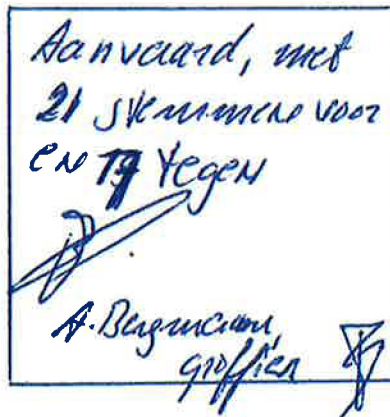 Aanvaard, met
21 stemmen voor
en tegen
A. Bergmann,
griffier